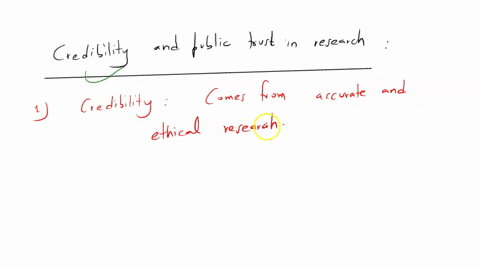 Credibility and public trust in research :
1) Credibility : Comes from accurate and
ethical research.